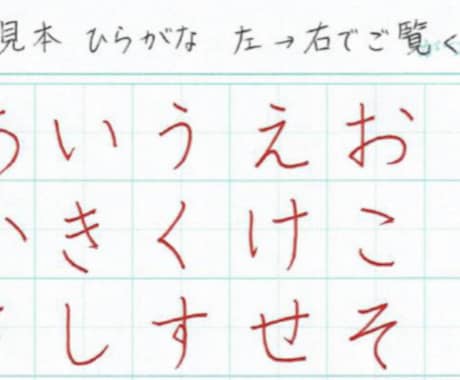 見本 ひらがな 左→右でご覧く
いうえお
きくけこ
しすせそ